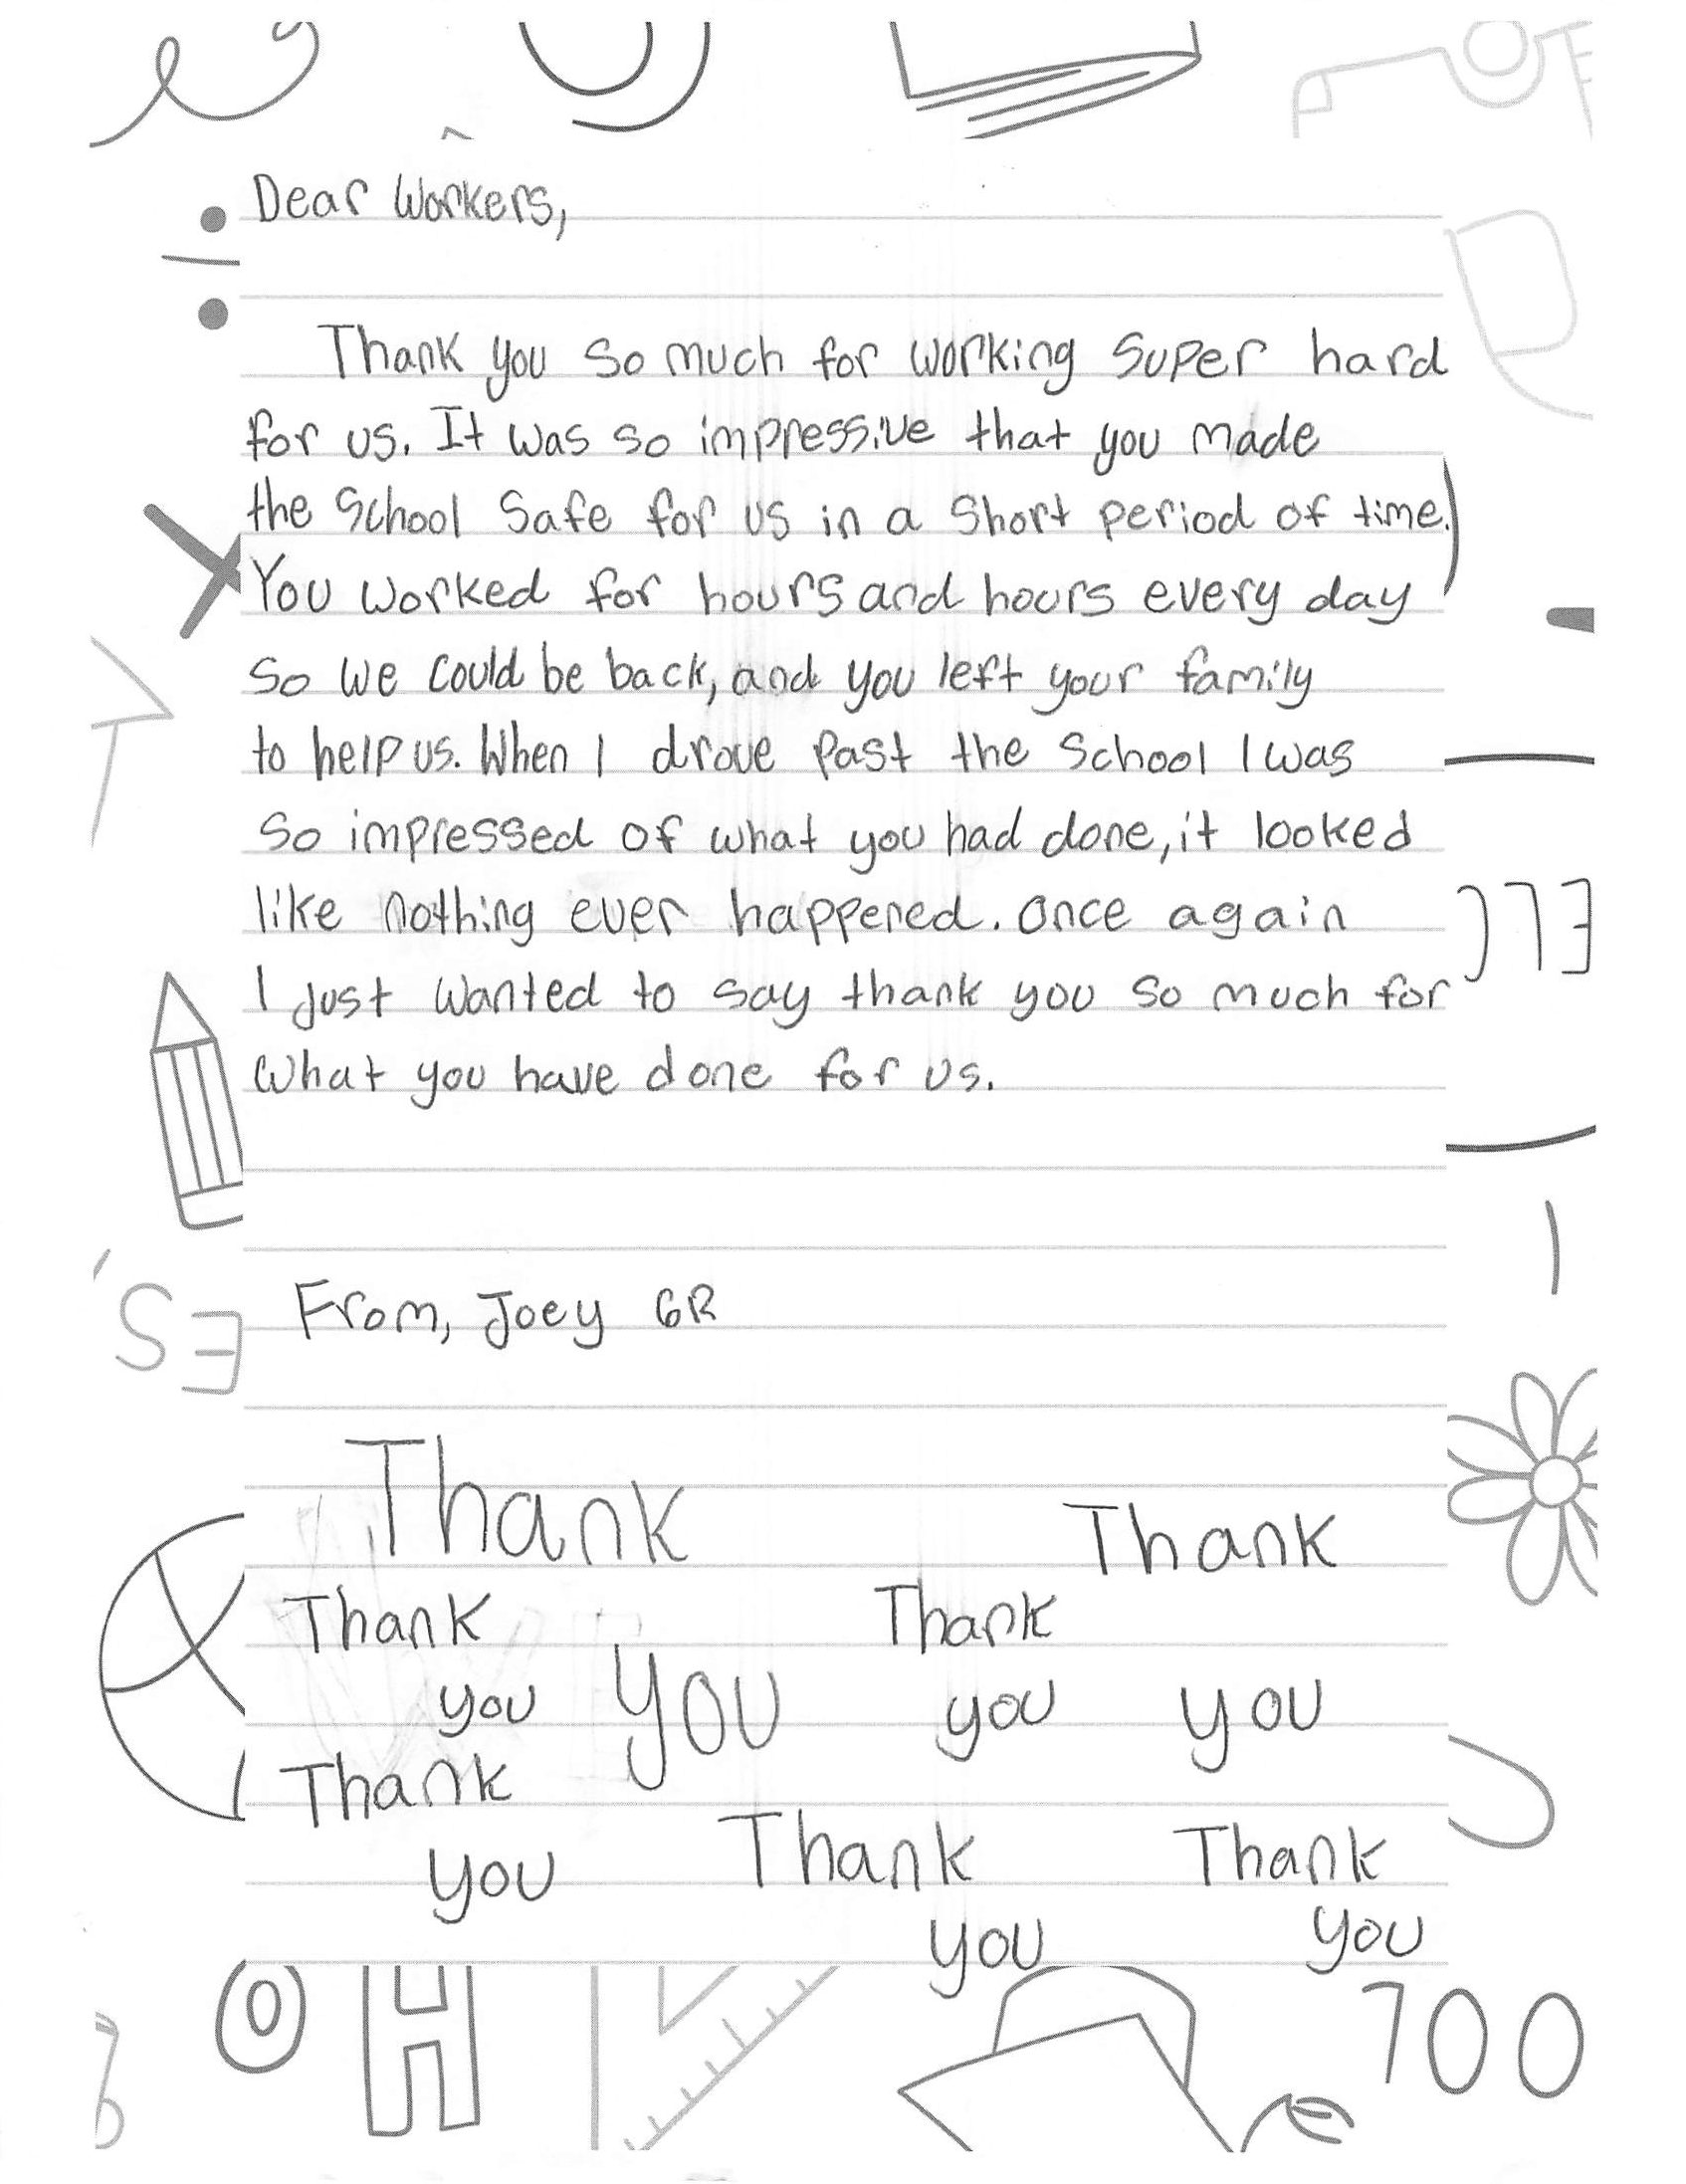 Dear Workers,
Thank you so much for working super hard
for us. It was so impressive that you made
the school safe for us in a short period of time.
You worked for hours and hours every day
so we could be back, and you left your family
to help us. When I drove past the school I was
so impressed of what you had done, it looked
like nothing ever happened. Once again
I just wanted to say thank you so much for
what you have done for us.
From, Joey 6R
Thank
Thank
Thank
Thank
you
you
you
you
Thank
you
Thank
you
Thank
you
O H
100